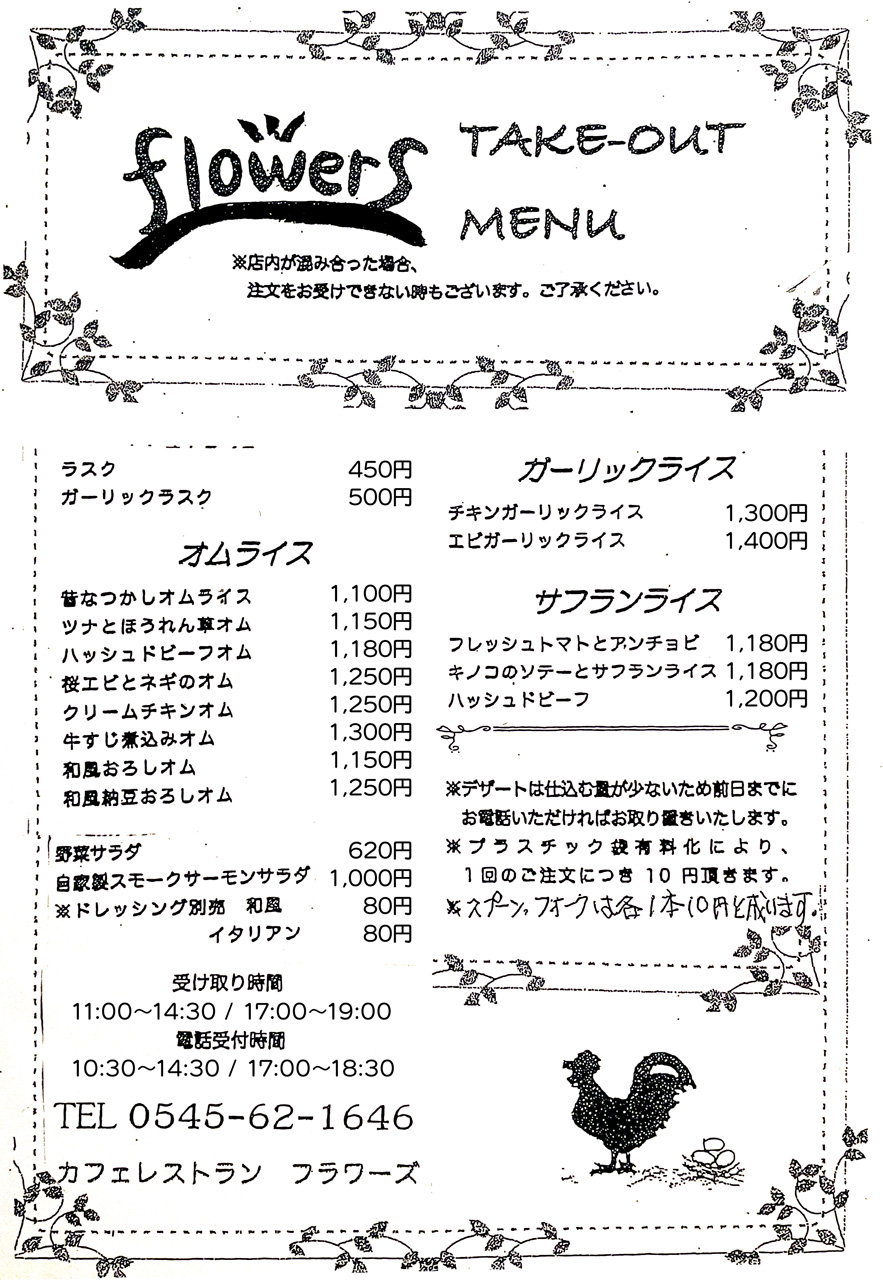 flowers
TAKE-OUT
MENU
※店内が混み合った場合、
注文をお受けできない時もございます。ご了承ください。
ラスク 450円
ガーリックラスク 500円
オムライス
昔なつかしオムライス 1,100円
ツナとほうれん草オム 1,150円
ハッシュドビーフオム 1,180円
桜エビとネギのオム 1,250円
クリームチキンオム 1,250円
牛すじ煮込みオム 1,300円
和風おろしオム 1,150円
和風納豆おろしオム 1,250円
野菜サラダ 620円
自家製スモークサーモンサラダ 1,000円
※ドレッシング別売 和風 80円
イタリアン 80円
受け取り時間
11:00～14:30 / 17:00～19:00
電話受付時間
10:30～14:30 / 17:00～18:30
TEL 0545-62-1646
カフェレストラン フラワーズ
ガーリックライス
チキンガーリックライス 1,300円
エビガーリックライス 1,400円
サフランライス
フレッシュトマトとアンチョビ 1,180円
キノコのソテーとサフランライス 1,180円
ハッシュドビーフ 1,200円
※デザートは仕込む量が少ないため前日までに
お電話いただければお取り置きいたします。
※プラスチック袋有料化により、
1回のご注文につき 10 円頂きます。
※スプーン、フォークは各1本10円と成ります。